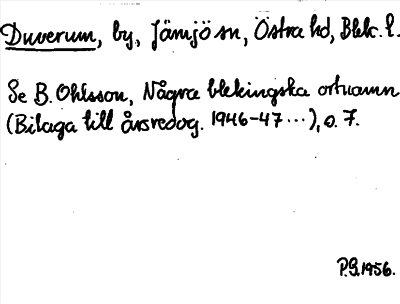 Duverum, by, Jämjö sn, Östra hd, Blek. l.
Se B. Ohlsson, Några blekingska ortnamn
(Bilaga till årsredog. 1946-47...), s. 7.
P.G. 1956.